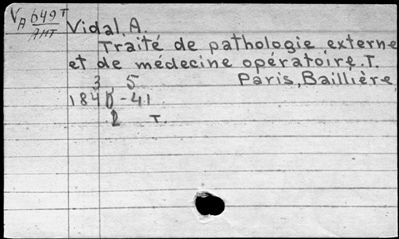 VA 649T
AHT
Vidal, A.
Traité de pathologie externe
et de médecine opératoire. T.
3 5 Paris, Baillière,
1840-41
2 T.